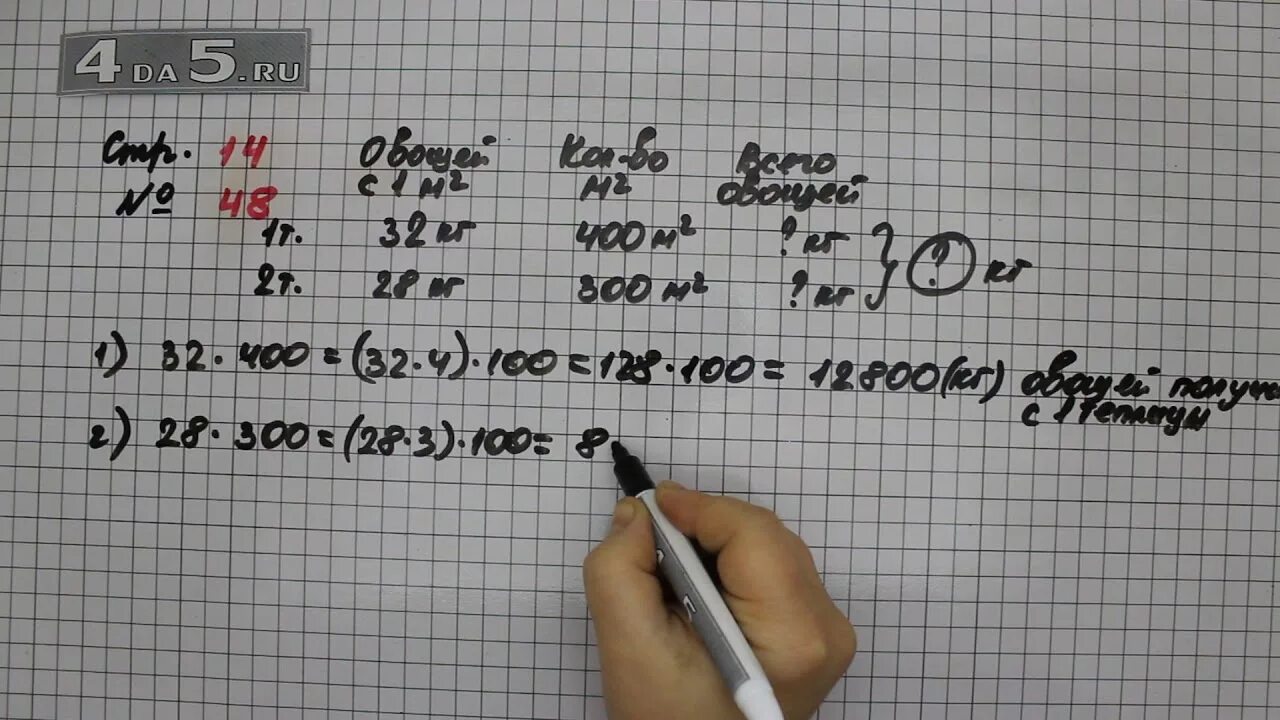 4DA5.RU
Стр. 14 Овощей Кол-во Всего
№ 48 с 1 м² м² овощей
1т. 32 кг 400 м² ? кг
2т. 28 кг 300 м² ? кг } ? кг
1) 32 · 400 = (32·4)·100 = 128·100 = 12800(кг) овощей получ
с 1 теплицы
2) 28 · 300 = (28·3)·100 = 8